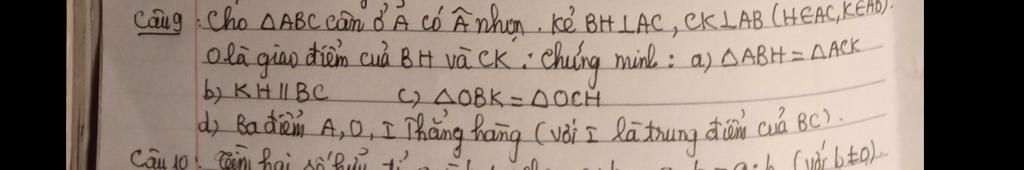 Câu 9: Cho ΔABC cân ở A có Â nhọn. Kẻ BH⊥AC, CK⊥AB (H∈AC, K∈AB).
O là giao điểm của BH và CK. Chứng minh: a) ΔABH = ΔACK
b) KH // BC c) ΔOBK = ΔOCH
d) Ba điểm A, O, I Thẳng hàng (với I là trung điểm của BC).
Câu 10: Tìm hai số hữu tỉ (với b≠0)